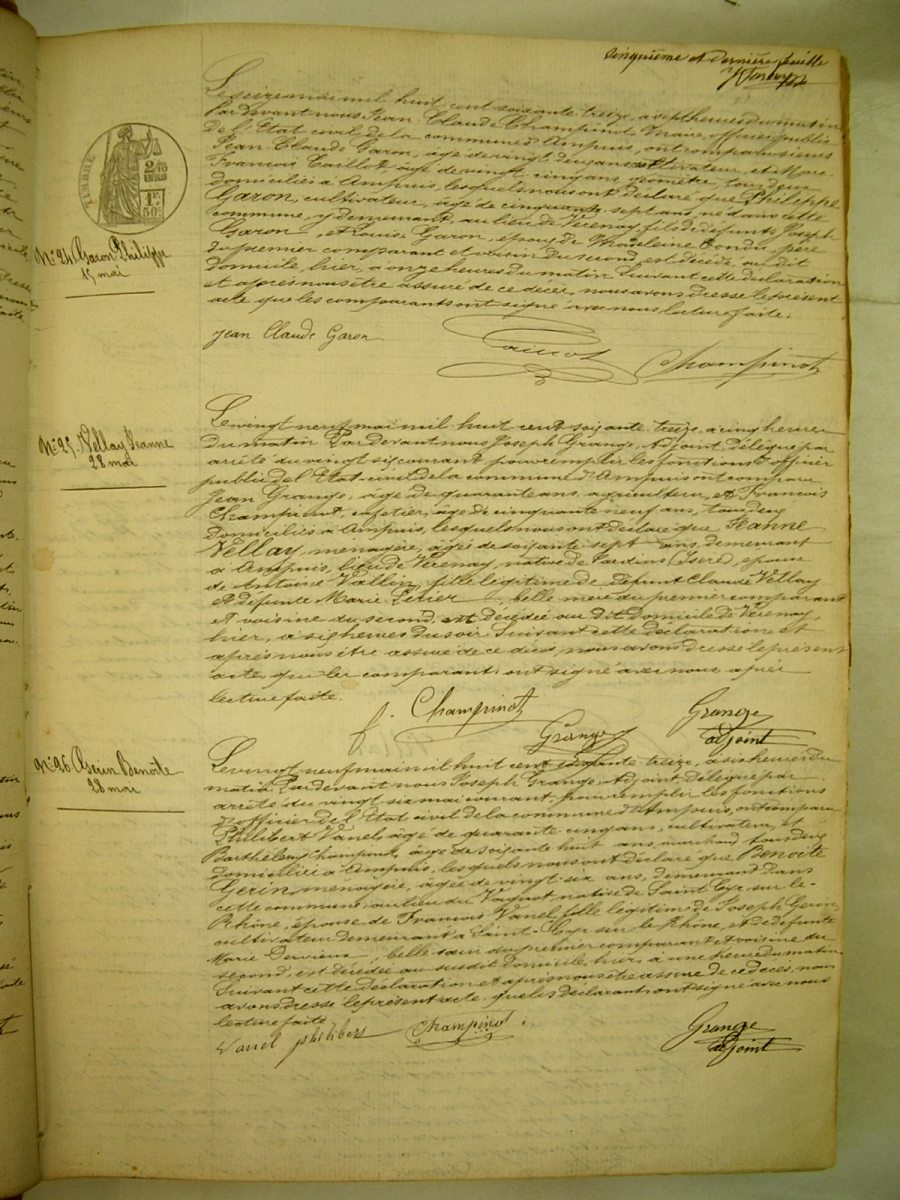 Vingtième et dernière feuille
TIMBRE
2/10
EN SUS
1F.
50c.
N° 24 Garon Philippe
15 mai
Le seize mai mil huit cent soixante treize, à sept heures du matin
Pardevant nous Jean Claude Champinot Maire, officier public
de l'Etat civil de la commune d'Ampuis, ont comparu sieurs
Jean Claude Garon, âgé de vingt deux ans cultivateur, et Marc
François Caillot, âgé de vingt cinq ans géomètre tous deux
domiciliés à Ampuis, lesquels nous ont déclaré que Philippe
Garon, cultivateur, âgé de cinquante sept ans, né dans cette
commune, y demeurant au lieu de Verenay, fils de défunts Joseph
Garon, et Louise Garon, époux de Magdeleine Bonda, père
du premier comparant et voisin du second, est décédé au dit
domicile, hier, à onze heures du matin. Suivant cette déclaration
et après nous être assuré de ce décès, nous avons dressé le présent
acte que les comparants ont signé avec nous lecture faite.
Jean Claude Garon
Caillot Champinot
N° 25. Vellay Jeanne
28 mai
Le vingt neuf mai mil huit cent soixante treize, à cinq heures
du matin Pardevant nous Joseph Grange, Adjoint, Délégué par
arrêté du vingt six courant pour remplir les fonctions d'officier
public de l'Etat-civil de la commune d'Ampuis ont comparu
Jean Grange, âgé de quarante ans, agriculteur, et François
Champinot, cafetier, âgé de cinquante neuf ans, tous deux
domiciliés à Ampuis, lesquels nous ont déclaré que Jeanne
Vellay, ménagère, âgée de soixante-sept ans, demeurant
à Ampuis, lieu de Verenay, native de Jardins (Isère), épouse
de Antoine Vallin, fille légitime de défunt Claude Vellay
et défunte Marie Perier, belle mère du premier comparant
et voisine du second, est décédée au dit domicile de Verenay,
hier, à six heures du soir. Suivant cette déclaration et
après nous être assuré de ce décès, nous avons dressé le présent
acte, que les comparants ont signé avec nous, après
lecture faite.
f. Champinot Grange Grange
adjoint
N° 26 Gerin Benoîte
28 mai
Le vingt neuf mai mil huit cent soixante treize, à six heures du
matin Pardevant nous Joseph Grange, Adjoint, Délégué par
arrêté du vingt six mai courant, pour remplir les fonctions
d'officier de l'Etat civil de la commune d'Ampuis, ont comparu
Philibert Vanel, âgé de quarante cinq ans, cultivateur, et
Barthélemy Champinot, âgé de soixante huit ans, marchand tous deux
domiciliés à Ampuis, lesquels nous ont déclaré que Benoîte
Gerin, ménagère, âgée de vingt-six ans, demeurant dans
cette commune, au lieu du Vagnot, native de Saint Cyr sur le-
Rhône, épouse de François Vanel, fille légitime de Joseph Gerin,
cultivateur demeurant à Saint-Cyr sur le Rhône, et de défunte
Marie Dervieux, belle sœur du premier comparant et voisine du
second, est décédée au susdit domicile, hier, à une heure du matin.
Suivant cette déclaration et après nous être assuré de ce décès, nous
avons dressé le présent acte que les déclarants ont signé avec nous
lecture faite.
Vanel philibert Champinot. Grange
adjoint